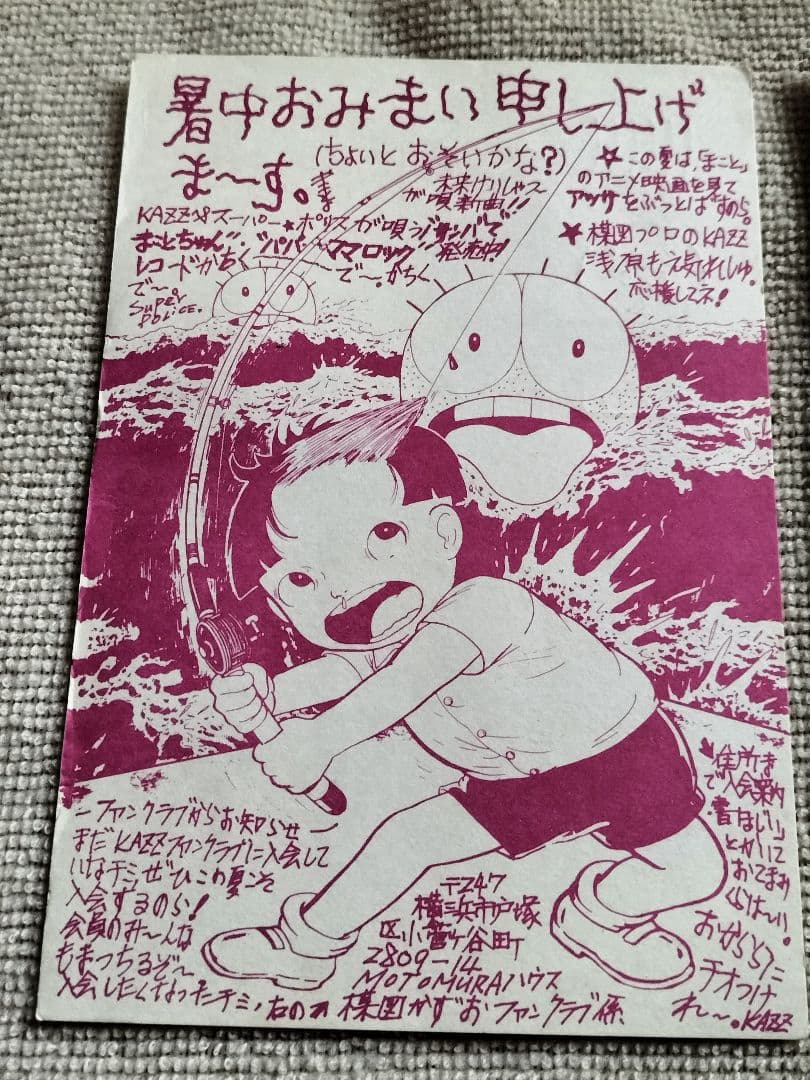 暑中おみまい申し上げ
ま〜す。
(ちょいとおそいかな?)
KAZZ&スーパー★ポリスが唄う
おとちゃん"パパ・ママロック"
レコードがちく
で〜。がちく
で〜。
Super
Police.
が唄新曲!!
ジサンバで
発売中!
★この夏は、「まこと」
のアニメ映画を見て
アツサをぶっとばすのら。
★楳図プロのKAZZ
浅原も元気れしゅ。
応援してネ!
ーファンクラブからお知らせー
まだKAZZファンクラブに入会して
いなチミぜひこの夏こそ
入会するのら!
会員のみ〜んな
もまっちるぞ〜
入会したくなったチミ、右の
楳図かずおファンクラブ係
〒247
横浜市戸塚
区小菅ヶ谷町
2809-14
MOTOMURAハウス
住所ま
で「入会案内
書なしい」
とかいて
おてまみ
くらは〜い。
おかららに
チオつけ
れ〜。KAZZ